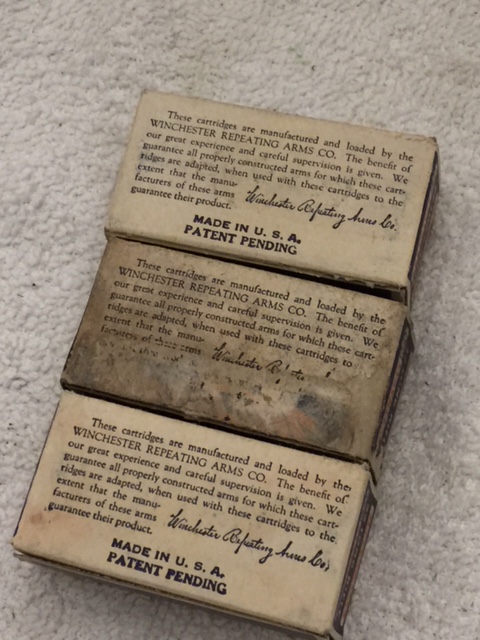 These cartridges are manufactured and loaded by the
WINCHESTER REPEATING ARMS CO. The benefit of
our great experience and careful supervision is given. We
guarantee all properly constructed arms for which these cart-
ridges are adapted, when used with these cartridges to the
extent that the manu-
facturers of these arms
guarantee their product.
Winchester Repeating Arms Co.
MADE IN U. S. A.
PATENT PENDING
These cartridges are manufactured and loaded by the
WINCHESTER REPEATING ARMS CO. The benefit of
our great experience and careful supervision is given. We
guarantee all properly constructed arms for which these cart-
ridges are adapted, when used with these cartridges to
extent that the manu-
facturers of these arms
Winchester
These cartridges are manufactured and loaded by the
WINCHESTER REPEATING ARMS CO. The benefit of
our great experience and careful supervision is given. We
guarantee all properly constructed arms for which these cart-
ridges are adapted, when used with these cartridges to the
extent that the manu-
facturers of these arms
guarantee their product.
Winchester Repeating Arms Co.
MADE IN U. S. A.
PATENT PENDING